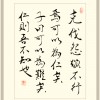 克伐怨欲不行
焉可以為仁矣
子曰可以為難矣
仁則吾不知也